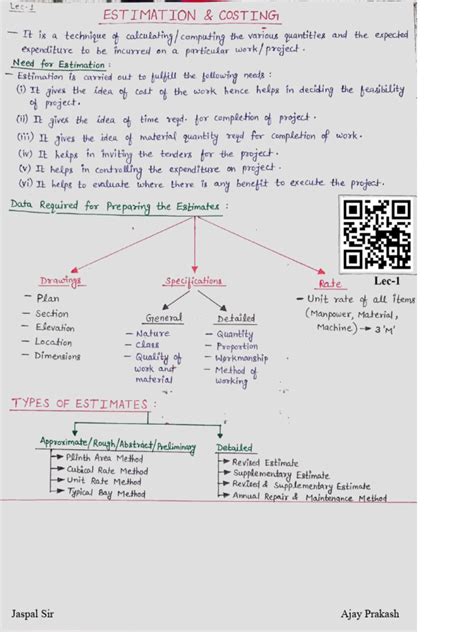 Lec-1
ESTIMATION & COSTING
- It is a technique of calculating/computing the various quantities and the expected
expenditure to be incurred on a particular work/project.
Need for Estimation:
- Estimation is carried out to fulfill the following needs:
(i) It gives the idea of cost of the work hence helps in deciding the feasibility
of project.
(ii) It gives the idea of time reqd. for completion of project.
(iii) It gives the idea of material quantity reqd for completion of work.
(iv) It helps in inviting the tenders for the project.
(v) It helps in controlling the expenditure on project.
(vi) It helps to evaluate where there is any benefit to execute the project.
Data Required for Preparing the Estimates:
Lec-1
Drawings
- Plan
- Section
- Elevation
- Location
- Dimensions
Specifications
General
- Nature
- Class
- Quality of
work and
material
Detailed
- Quantity
- Proportion
- Workmanship
- Method of
working
Rate
- Unit rate of all items
(Manpower, Material,
Machine) → 3 'M'
TYPES OF ESTIMATES:
Approximate/Rough/Abstract/Preliminary
→ Plinth Area Method
→ Cubical Rate Method
→ Unit Rate Method
→ Typical Bay Method
Detailed
→ Revised Estimate
→ Supplementary Estimate
→ Revised & Supplementary Estimate
→ Annual Repair & Maintenance Method
Jaspal Sir
Ajay Prakash